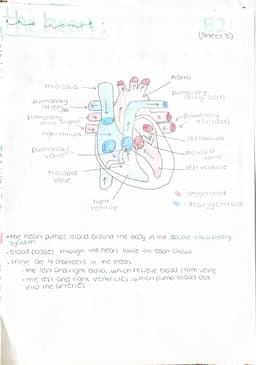 The heart:
B2
(sheet 3)
Vena cava
Aorta
pulmonary artery
pulmonary artery (left)
pulmonary vein (right)
pulmonary vein (left)
right atrium
left atrium
pulmonary valve
bicuspid valve
tricuspid valve
left ventricle
right ventricle
- oxygenated
- deoxygenated
• the heart pumps blood around the body in the double circulatory
system
• blood passes through the heart twice on each circuit
• there are 4 chambers in the heart
- the left and right atria, which receive blood from veins
- the left and right ventricles, which pump blood out
into the arteries